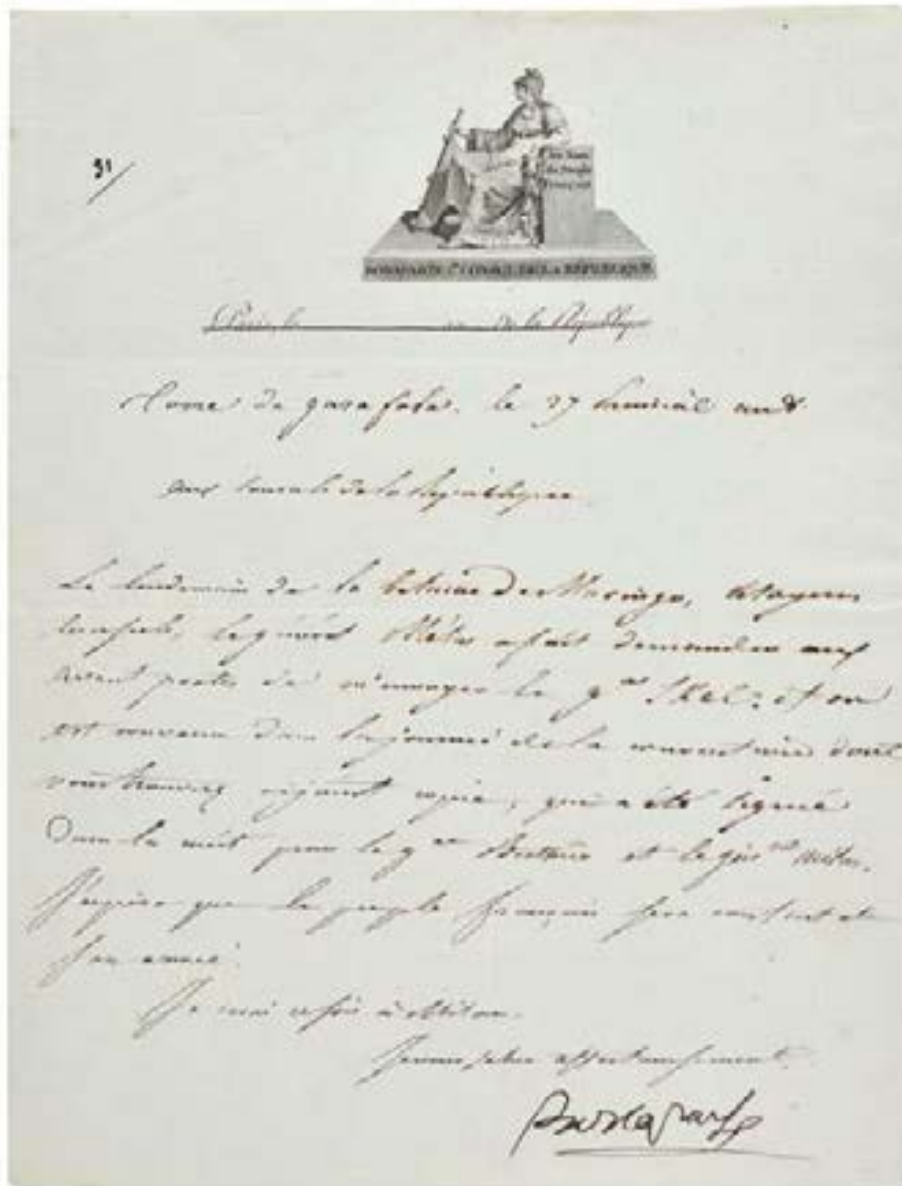 91/
Au Nom
du Peuple
Français
BONAPARTE 1er CONSUL DE LA REPUBLIQUE
Paris, le de la République
Torre de garafola, le 27 prairial an 8.
aux Consuls de la République
Le lendemain de la bataille de Maringo, citoyens
Consuls, le général Mélas a fait demander aux
avant postes de m'envoyer le gal Skal; et on
est convenu dans la journée de la convention dont
vous trouverez cijoint copie, qui a été signée
dans la nuit par le gal Berthier et le général Mélas.
J'espère que le peuple français sera content de
son armée.
Je serai ce soir à Milan.
Je vous salue affectueusement.
Bonaparte